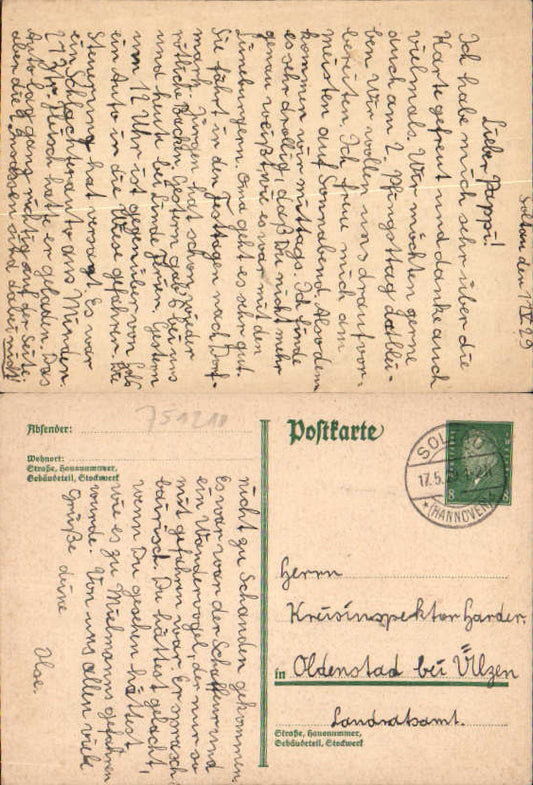 Soltau den 17.V.29
Lieber Pappi!
Ich habe mich sehr über die
Karte gefreut und danke auch
vielmals. Wir möchten gerne
auch am 2. Pfingsttag
ben. Wir wollen uns drauf vor-
bereiten. Ich freue mich am
meisten auf Sonnabend. Also dem
kommen wir mittags. Ich finde
es sehr drollig, daß Du nicht mehr
genau weißt wie es war mit den
Lüneburgern. Oma geht es sehr gut.
Sie fährt in den Festtagen nach Dorf-
mark. Jürgen hat schon wieder
rötliche Backen. Gestern gab es bei uns
und heute bei
um 12 Uhr ist gegenüber von
ein Auto in die Wiese gefahren. Die
Steuerung hat versagt. Es war
ein Schlachterauto aus Minden.
Fleisch hatte er geladen. Das
Auto lag ganz richtig auf der Seite,
aber die Insassen sind dabei nicht
Absender:
Wohnort:
Straße, Hausnummer,
Gebäudeteil, Stockwerk
751210
nicht zu Schanden gekommen.
Es war der Schofför und
ein Wandervogel, der nur so
mit gefahren war. Er sprach
bairisch. Du hättst gelacht,
wenn Du gesehen hättst
wie es zu Mielmann gefahren
wurde. Von uns allen viele
Grüße deine
Ilse.
Postkarte
SOLTAU
17.5.29
(HANNOVER)
8 8
Herrn
Kreisinspektor Harder.
in Oldenstad bei Ülzen
Landratsamt.
Straße, Hausnummer,
Gebäudeteil, Stockwerk